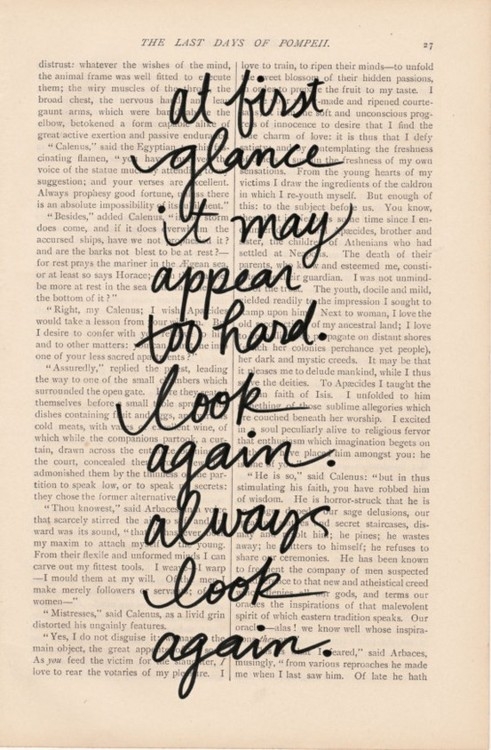 THE LAST DAYS OF POMPEII. 27
at first
glance
it may
appear
too hard.
look
again.
always
look
again.
distrust: whatever the wishes of the mind,
the animal frame was well fitted to execute
them; the wiry muscles of the
broad chest, the nervous
gaunt arms, which were
elbow, betokened a form
great active exertion and passive
"Calenus," said the Egyptian
cinating flamen,
voice of the statue
suggestion; and your verses are
Always prophesy good fortune, there
is an absolute impossibility
"Besides," added Calenus,
does come, and if it does
accursed ships, have we not it?
and are the barks not blest to be at rest?—
for rest prays the mariner in the sea,
or at least so says Horace;
be more at rest in the sea
the bottom of it?"
"Right, my Calenus; I wish
would take a lesson from
I desire to confer with
and to other matters:
one of your less sacred
"Assuredly," replied the
the way to one of the small chambers which
surrounded the open gate.
themselves before a small
dishes containing fruit and
cold meats, with wine, of
which while the companions
tain, drawn across the
the court, concealed
admonished them by the
tition to speak low, or to speak secrets:
they chose the former alternative.
"Thou knowest," said Arbaces
that scarcely stirred the
ward was its sound,
my maxim to attach young.
From their flexile and unformed minds I can
carve out my fittest tools. I warp
—I mould them at my will.
make merely followers
women—"
"Mistresses," said Calenus, as a livid grin
distorted his ungainly features.
"Yes, I do not disguise it:
main object, the great
As you feed the victim for I
love to rear the votaries of my pleasure. I
love to train, to ripen their minds—to unfold
the sweet blossom of their hidden passions,
the fruit to my taste. I
and ripened courte-
soft and unconscious prog-
of innocence to desire that I find the
charm of love: it is thus that I defy
contemplating the freshness
freshness of my own
sensations. From the young hearts of my
victims I draw the ingredients of the caldron
in which I re-youth myself. But enough of
this: to the subject before us. You know,
time since I en-
brother and
the children of Athenians who had
settled at The death of their
parents, who and esteemed me, consti-
guardian. I was not unmind-
The youth, docile and mild,
yielded readily to the impression I sought to
upon him. Next to woman, I love the
old of my ancestral land; I love
propagate on distant shores
her colonies perchance yet people),
her dark and mystic creeds. It may be that
pleases me to delude mankind, while I thus
the deities. To Apæcides I taught the
faith of Isis. I unfolded to him
of those sublime allegories which
couched beneath her worship. I excited
soul peculiarly alive to religious fervor
that enthusiasm which imagination begets on
place him amongst you: he
"He is so," said Calenus: "but in thus
stimulating his faith, you have robbed him
of wisdom. He is horror-struck that he is
sage delusions, our
secret staircases, dis-
he pines; he wastes
away; he mutters to himself; he refuses to
share our ceremonies. He has been known
to frequent the company of men suspected
to that new and atheistical creed
gods, and terms our
oracles the inspirations of that malevolent
spirit of which eastern tradition speaks. Our
oracles—alas! we know well whose inspira-
feared," said Arbaces,
musingly, "from various reproaches he made
me when I last saw him. Of late he hath